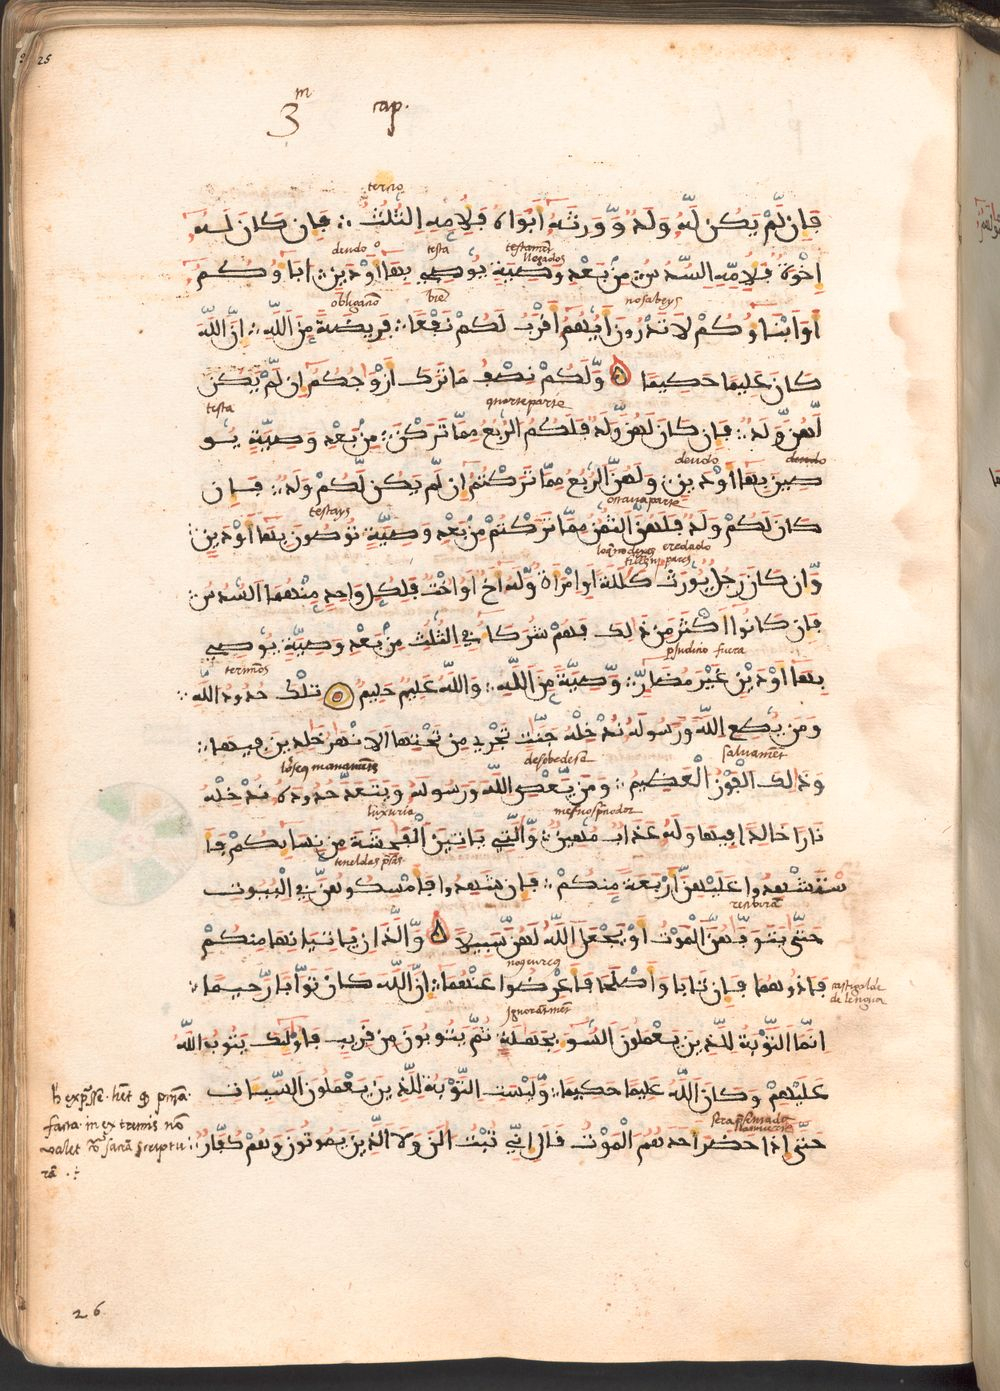 25
3m cap.
tercio
فَإِن لَّمْ يَكُن لَّهُ وَلَدٌ وَوَرِثَهُ أَبَوَاهُ فَلِأُمِّهِ الثُّلُثُ ∴ فَإِن كَانَ لَهُ
deudo testa testament llegados
إِخْوَةٌ فَلِأُمِّهِ السُّدُسُ مِنۢ بَعْدِ وَصِيَّةٍ يُوصِي بِهَا أَوْ دَيْنٍ ∴ ابَاؤُكُمْ
nosabeys
وَأَبْنَاؤُكُمْ لَا تَدْرُونَ أَيُّهُمْ أَقْرَبُ لَكُمْ نَفْعًا ∴ فَرِيضَةً مِّنَ اللَّهِ ∴ إِنَّ اللَّهَ
كَانَ عَلِيمًا حَكِيمًا وَلَكُمْ نِصْفُ مَا تَرَكَ أَزْوَاجُكُمْ إِن لَّمْ يَكُن
testa quarte parte
لَّهُنَّ وَلَدٌ ∴ فَإِن كَانَ لَهُنَّ وَلَدٌ فَلَكُمُ الرُّبُعُ مِمَّا تَرَكْنَ ∴ مِنۢ بَعْدِ وَصِيَّةٍ يُو
deudo deudo
صِينَ بِهَا أَوْ دَيْنٍ ∴ وَلَهُنَّ الرُّبُعُ مِمَّا تَرَكْتُمْ إِن لَّمْ يَكُن لَّكُمْ وَلَدٌ ∴ فَإِن
testays ottaua parte
كَانَ لَكُمْ وَلَدٌ فَلَهُنَّ الثُّمُنُ مِمَّا تَرَكْتُم مِّنۢ بَعْدِ وَصِيَّةٍ تُوصُونَ بِهَا أَوْ دَيْنٍ ∴
eredado
وَإِن كَانَ رَجُلٌ يُورَثُ كَلَلَةً أَوِ امْرَأَةٌ وَلَهُ أَخٌ أَوْ أُخْتٌ فَلِكُلِّ وَاحِدٍ مِّنْهُمَا السُّدُسُ ∴
فَإِن كَانُوا أَكْثَرَ مِن ذَلِكَ فَهُمْ شُرَكَاءُ فِي الثُّلُثِ مِنۢ بَعْدِ وَصِيَّةٍ يُوصِي
terminos fuera
بِهَا أَوْ دَيْنٍ غَيْرَ مُضَارٍّ ∴ وَصِيَّةً مِّنَ اللَّهِ ∴ وَاللَّهُ عَلِيمٌ حَلِيمٌ تِلْكَ حُدُودُ اللَّهِ ∴
وَمَن يُطِعِ اللَّهَ وَرَسُولَهُ نُدْخِلْهُ جَنَّتٍ تَجْرِي مِن تَحْتِهَا الْأَنْهَرُ خَلِدِينَ فِيهَا ∴
desobedesce saluament
وَذَلِكَ الْفَوْزُ الْعَظِيمُ ∴ وَمَن يَعْصِ اللَّهَ وَرَسُولَهُ وَيَتَعَدَّ حُدُودَهُ نُدْخِلْهُ
luxuria
نَارًا خَالِدًا فِيهَا وَلَهُ عَذَابٌ مُّهِينٌ ∴ وَالَّتِي يَأْتِينَ الْفَحِشَةَ مِن نِّسَائِكُمْ فَا
سْتَشْهِدُوا عَلَيْهِنَّ أَرْبَعَةً مِّنكُمْ ∴ فَإِن شَهِدُوا فَأَمْسِكُوهُنَّ فِي الْبُيُوتِ
حَتَّى يَتَوَفَّهُنَّ الْمَوْتُ أَوْ يَجْعَلَ اللَّهُ لَهُنَّ سَبِيلًا وَالَّذَانِ يَأْتِيَانِهَا مِنكُمْ
فَآذُوهُمَا فَإِن تَابَا وَأَصْلَحَا فَأَعْرِضُوا عَنْهُمَا ∴ إِنَّ اللَّهَ كَانَ تَوَّابًا رَّحِيمًا ∴
castigalde de lengua
ignorantment
إِنَّمَا التَّوْبَةُ لِلَّذِينَ يَعْمَلُونَ السُّوءَ بِجَهَلَةٍ ثُمَّ يَتُوبُونَ مِن قَرِيبٍ فَأُولَئِكَ يَتُوبُ اللَّهُ
عَلَيْهِمْ وَكَانَ اللَّهُ عَلِيمًا حَكِيمًا ∴ وَلَيْسَتِ التَّوْبَةُ لِلَّذِينَ يَعْمَلُونَ السَّيِّئَاتِ
حَتَّى إِذَا حَضَرَ أَحَدَهُمُ الْمَوْتُ قَالَ إِنِّي تُبْتُ الْنَ وَلَا الَّذِينَ يَمُوتُونَ وَهُمْ كُفَّارٌ ∴
in extremis non
valet
26